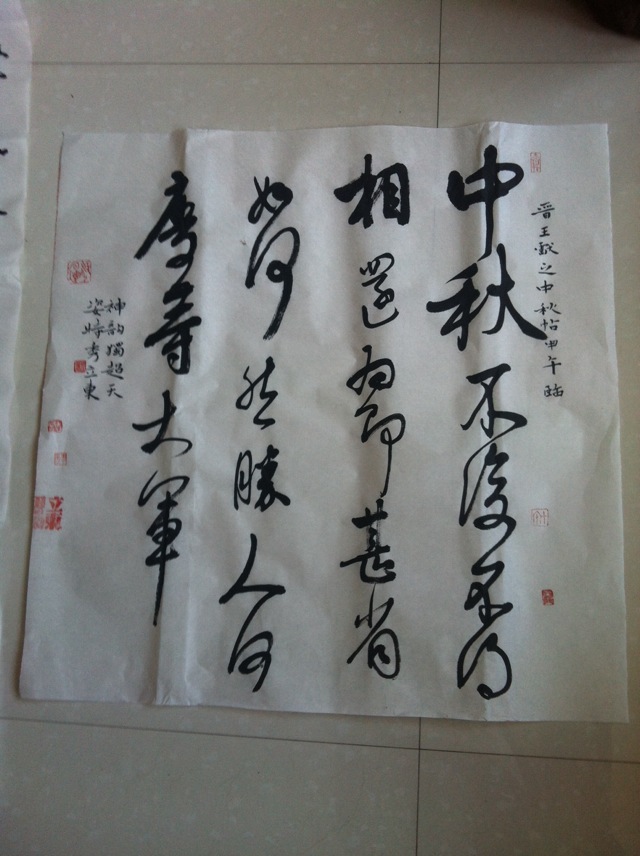 晋王献之中秋帖甲午临
中秋不復不得
相還為即甚省
如何然勝人何
慶等大軍
神韵獨超天
姿特秀立東
立東